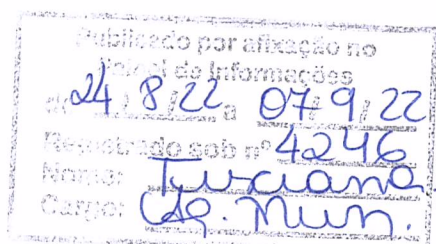 Publicado por afixação no
Painel de Informações
de 24 / 8 / 22 a 07 / 9 / 22
Registrado sob nº 4246
Nome: Luciana
Cargo: Ag. Mun.